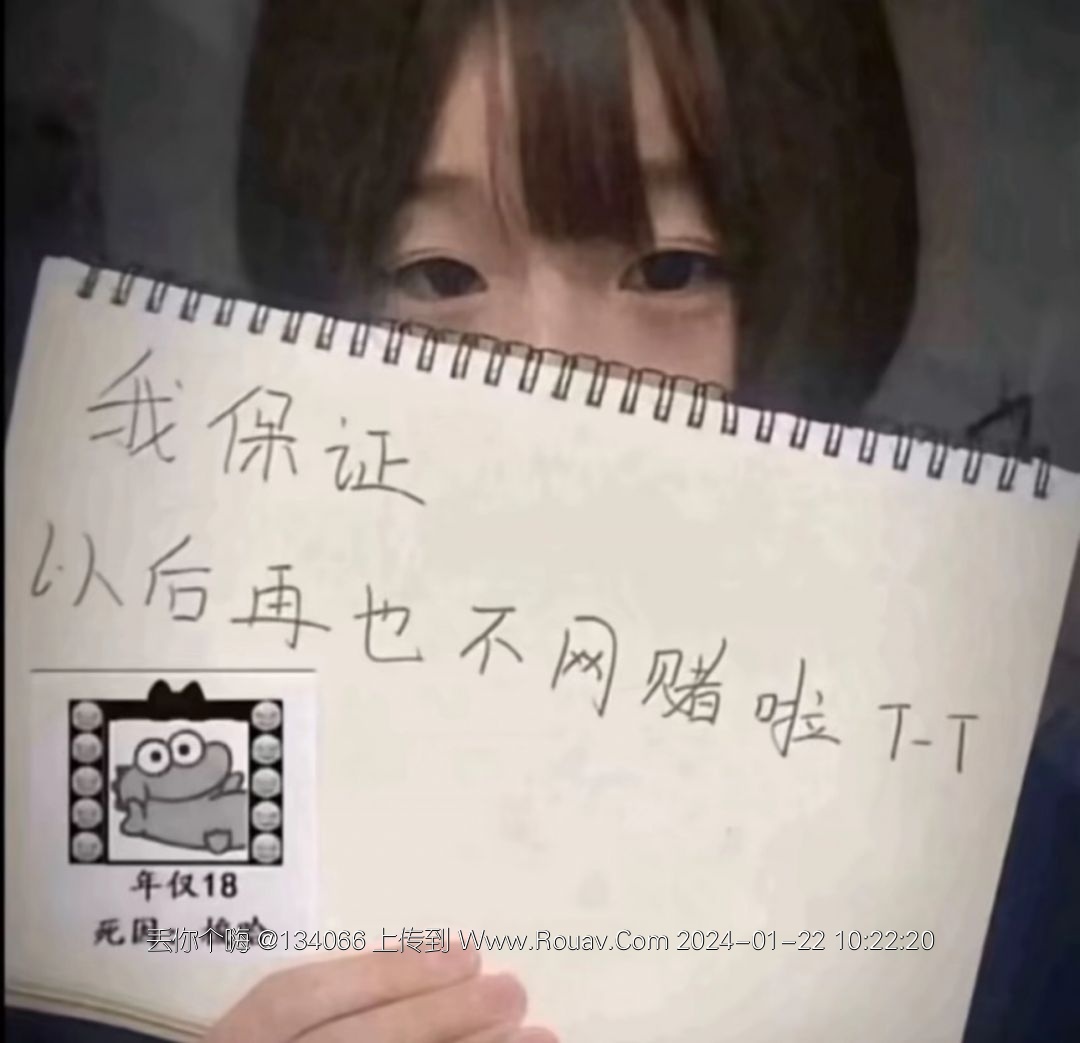 我保证
以后再也不网赌啦 T-T
年仅18
死因:
丢你个嗨 @134066 上传到 Www.Rouav.Com 2024-01-22 10:22:20